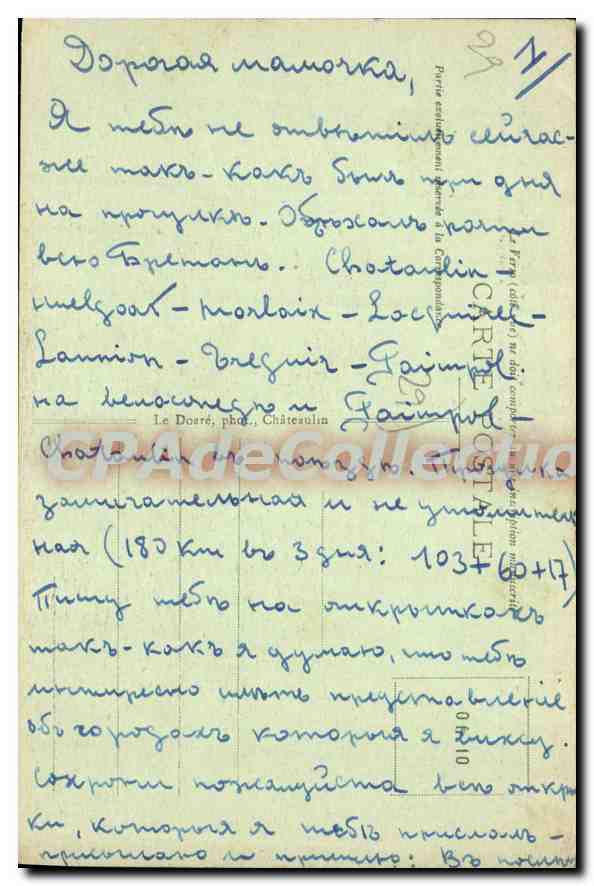 Дорогая мамочка,
1/
29
Я тебѣ не отвѣтилъ сейчас-
же такъ-какъ былъ три дня
на прогулкѣ. Объѣхалъ почти
всю Бретань. Chateaulin -
Huelgoat - Morlaix - Locquirec -
Lannion - Treguir - Paimpol.
на велосопедѣ и Paimpol -
Chateaulin въ поѣзду. Прогулка
замѣчательная и не утомитель
ная (180 km въ 3 дня: 103+60+17)
Пишу тебѣ на открыткахъ
такъ-какъ я думаю, что тебѣ
интиресно имѣть представленіе
объ городахъ которыя я вижу.
Сохрони, пожалуйста всю откры
ки, которыя я тебѣ прислалъ -
присылаю и пришлю: Въ
Partie exclusivement réservée à la Correspondance
Le Verso (côté vue) ne doit comporter inscription manuscrite
CARTE POSTALE
Le Doaré, phot., Châteaulin
29
CPADeCollection
01 10